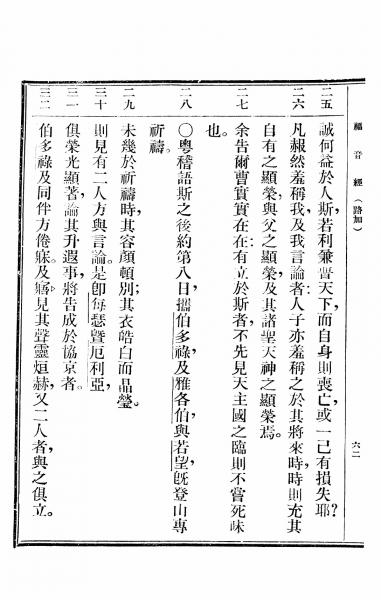 福音經（路加）
六二
二五
誠何益於人斯若利兼普天下，而自身則喪亡，或一己有損失耶？
二六
凡赧然羞稱我及我言論者，人子亦羞稱之於其將來時，時則充其
自有之顯榮，與父之顯榮，及其諸聖天神之顯榮焉。
二七
余告爾曹實實在在：有立於斯者，不先見天主國之臨，則不嘗死味
也。
二八
〇粵稽語斯之後約第八日，攜伯多祿，及雅各伯，與若望，旣登山專
祈禱。
二九
未幾於祈禱時，其容顏頓別；其衣皓白而晶瑩。
三十
則見有二人方與言論。是卽每瑟曁厄利亞，
三一
俱榮光顯著，論其升遐事，將告成於協京者。
三二
伯多祿及同伴方倦寐，及寤，見其聲靈烜赫，又二人者，與之俱立。